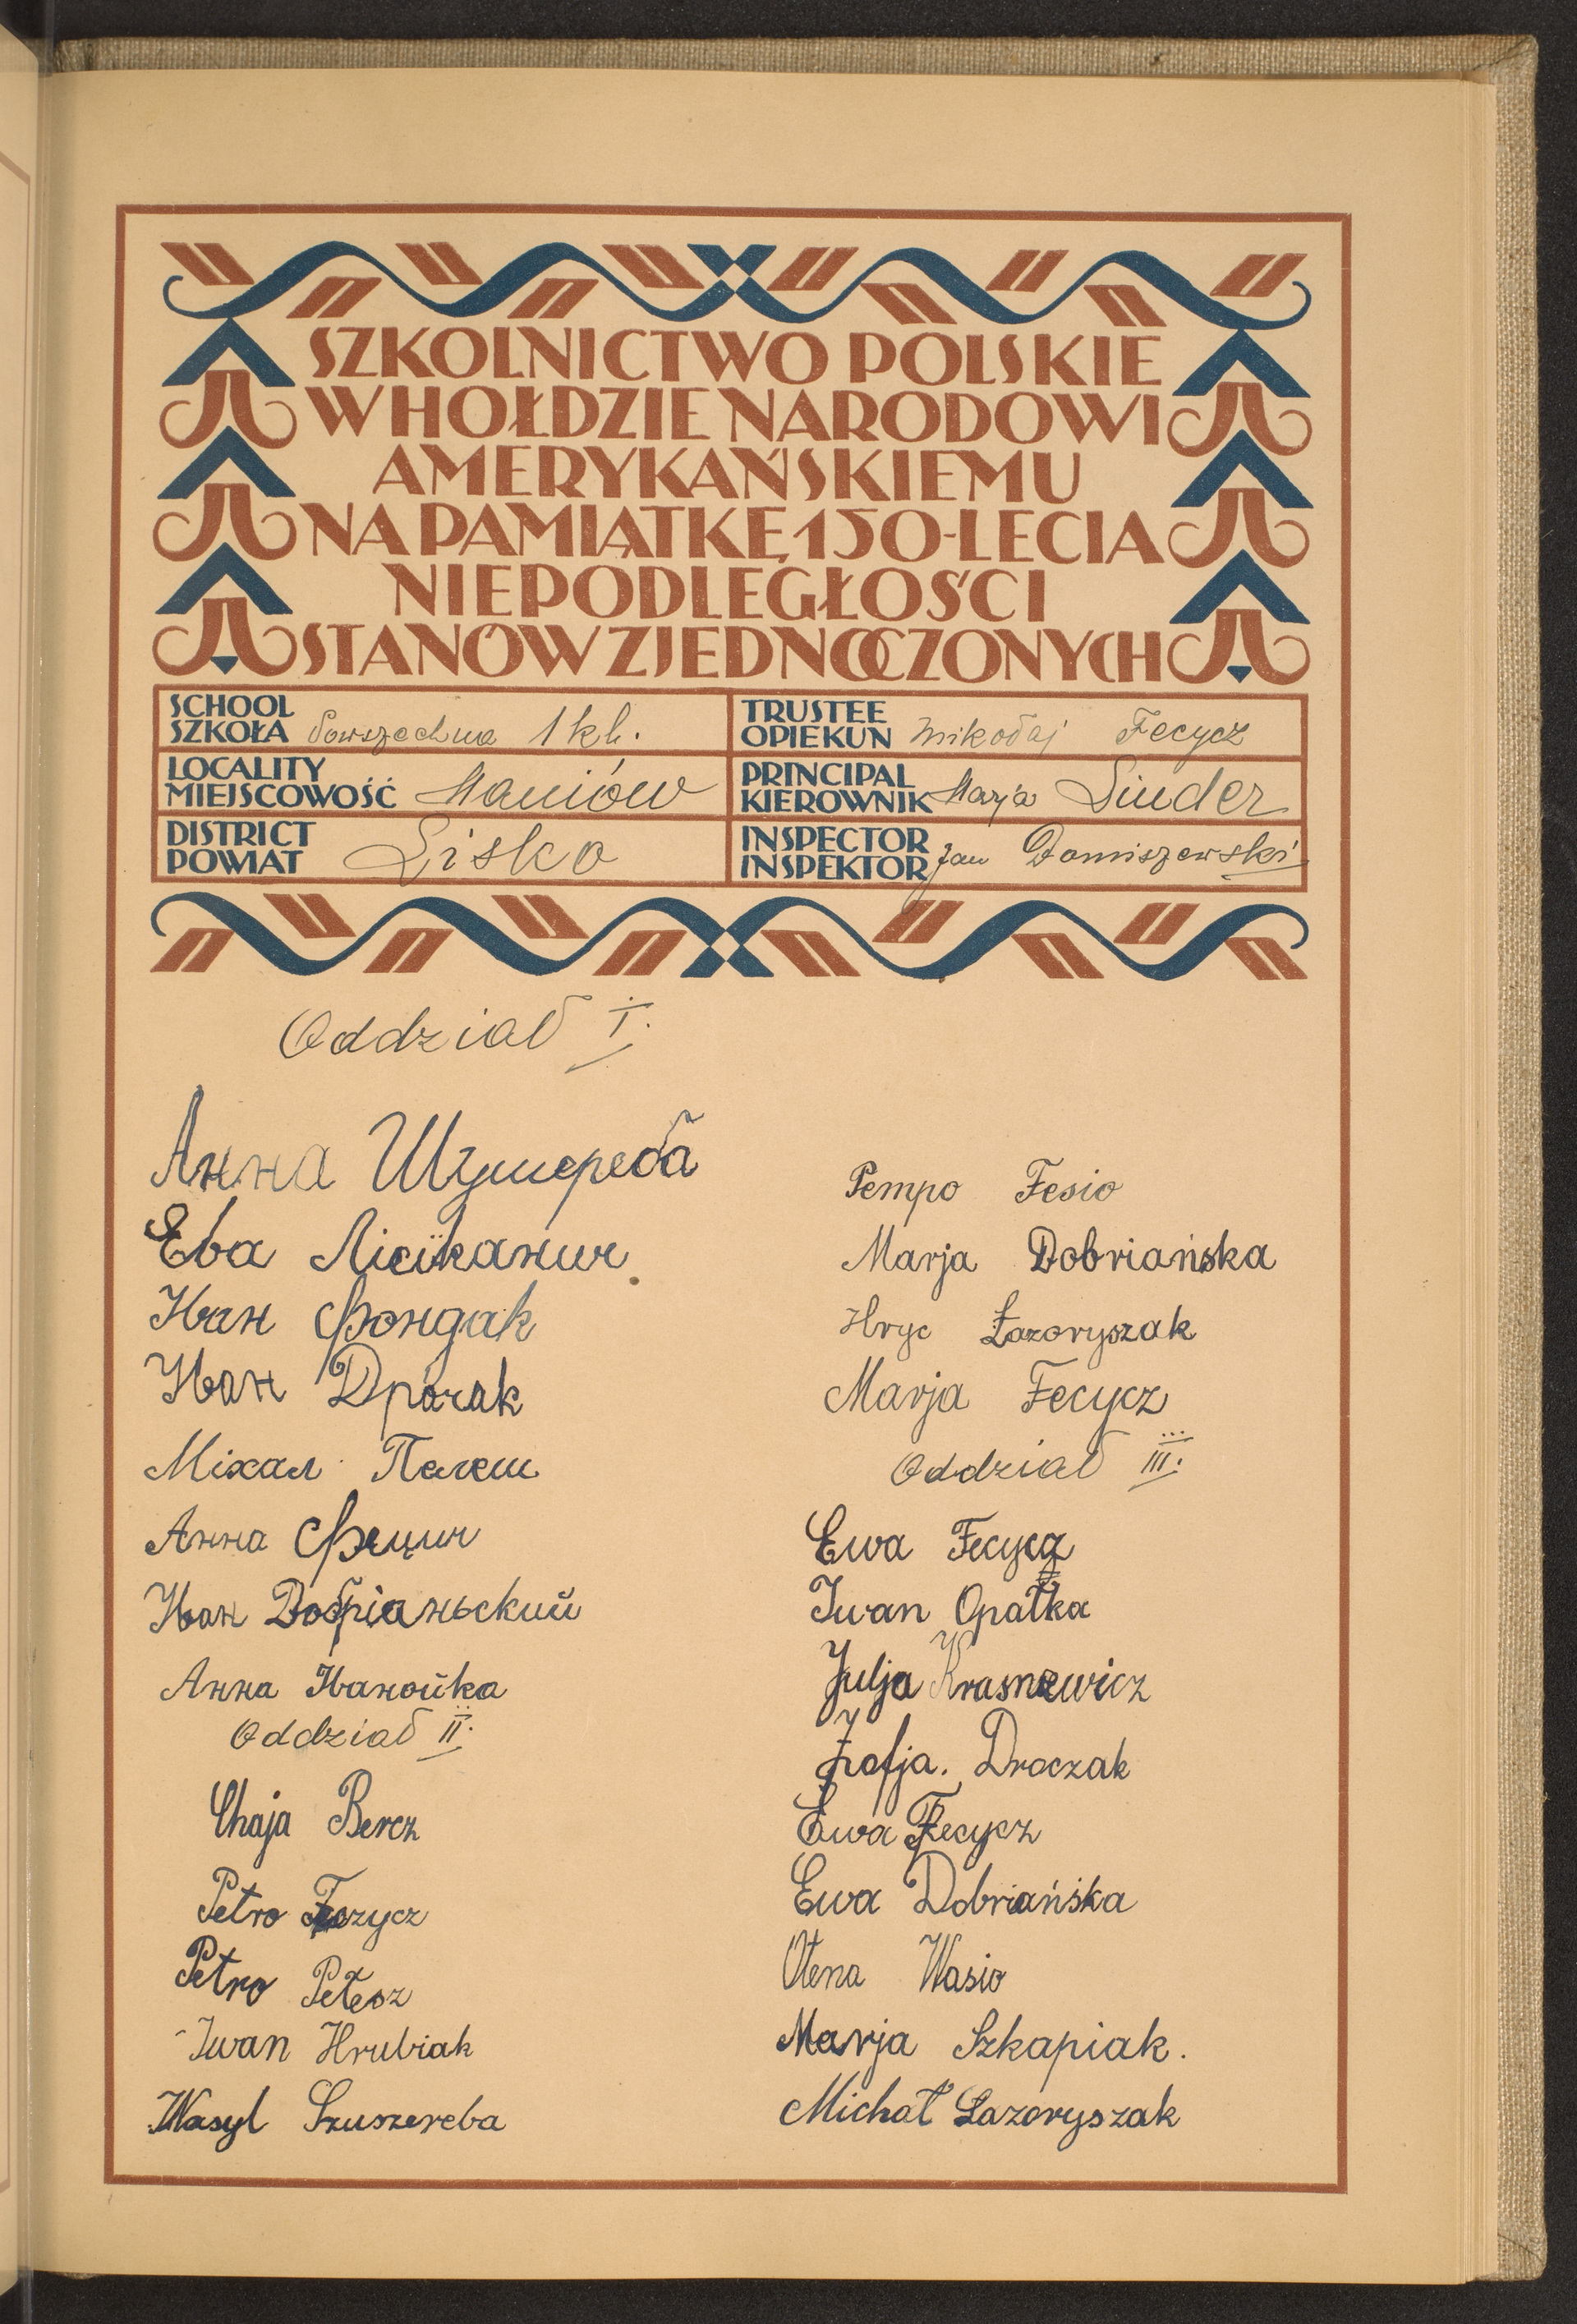 SZKOLNICTWO POLSKIE
W HOŁDZIE NARODOWI
AMERYKAŃSKIEMU
NA PAMIĄTKĘ 150-LECIA
NIEPODLEGŁOŚCI
STANÓW ZJEDNOCZONYCH
SCHOOL
SZKOŁA Powszechna 1 kl.
TRUSTEE
OPIEKUN Mikołaj Fecycz
LOCALITY
MIEJSCOWOŚĆ Maniów
PRINCIPAL
KIEROWNIK Marja Linder
DISTRICT
POWIAT Lisko
INSPECTOR
INSPEKTOR Jan Domiszewski
Oddział I.
Анна
Ева
Иван Фондак
Иван Дрочак
Міхал Пелеш
Анна Фецич
Иван Добріаньский
Анна Иванойка
Oddział II.
Chaja Bercz
Petro
Petro Petesz
Iwan Hrubiak
Wasyl Szuszereba
Pempo Fesio
Marja Dobriańska
Hryc Łazoryszak
Marja Fecycz
Oddział III.
Ewa Fecycz
Iwan Opatka
Julja Krasnewicz
Zofja. Droczak
Ewa Fecycz
Ewa Dobriańska
Ołena Wasio
Marja Szkapiak.
Michał Łazoryszak